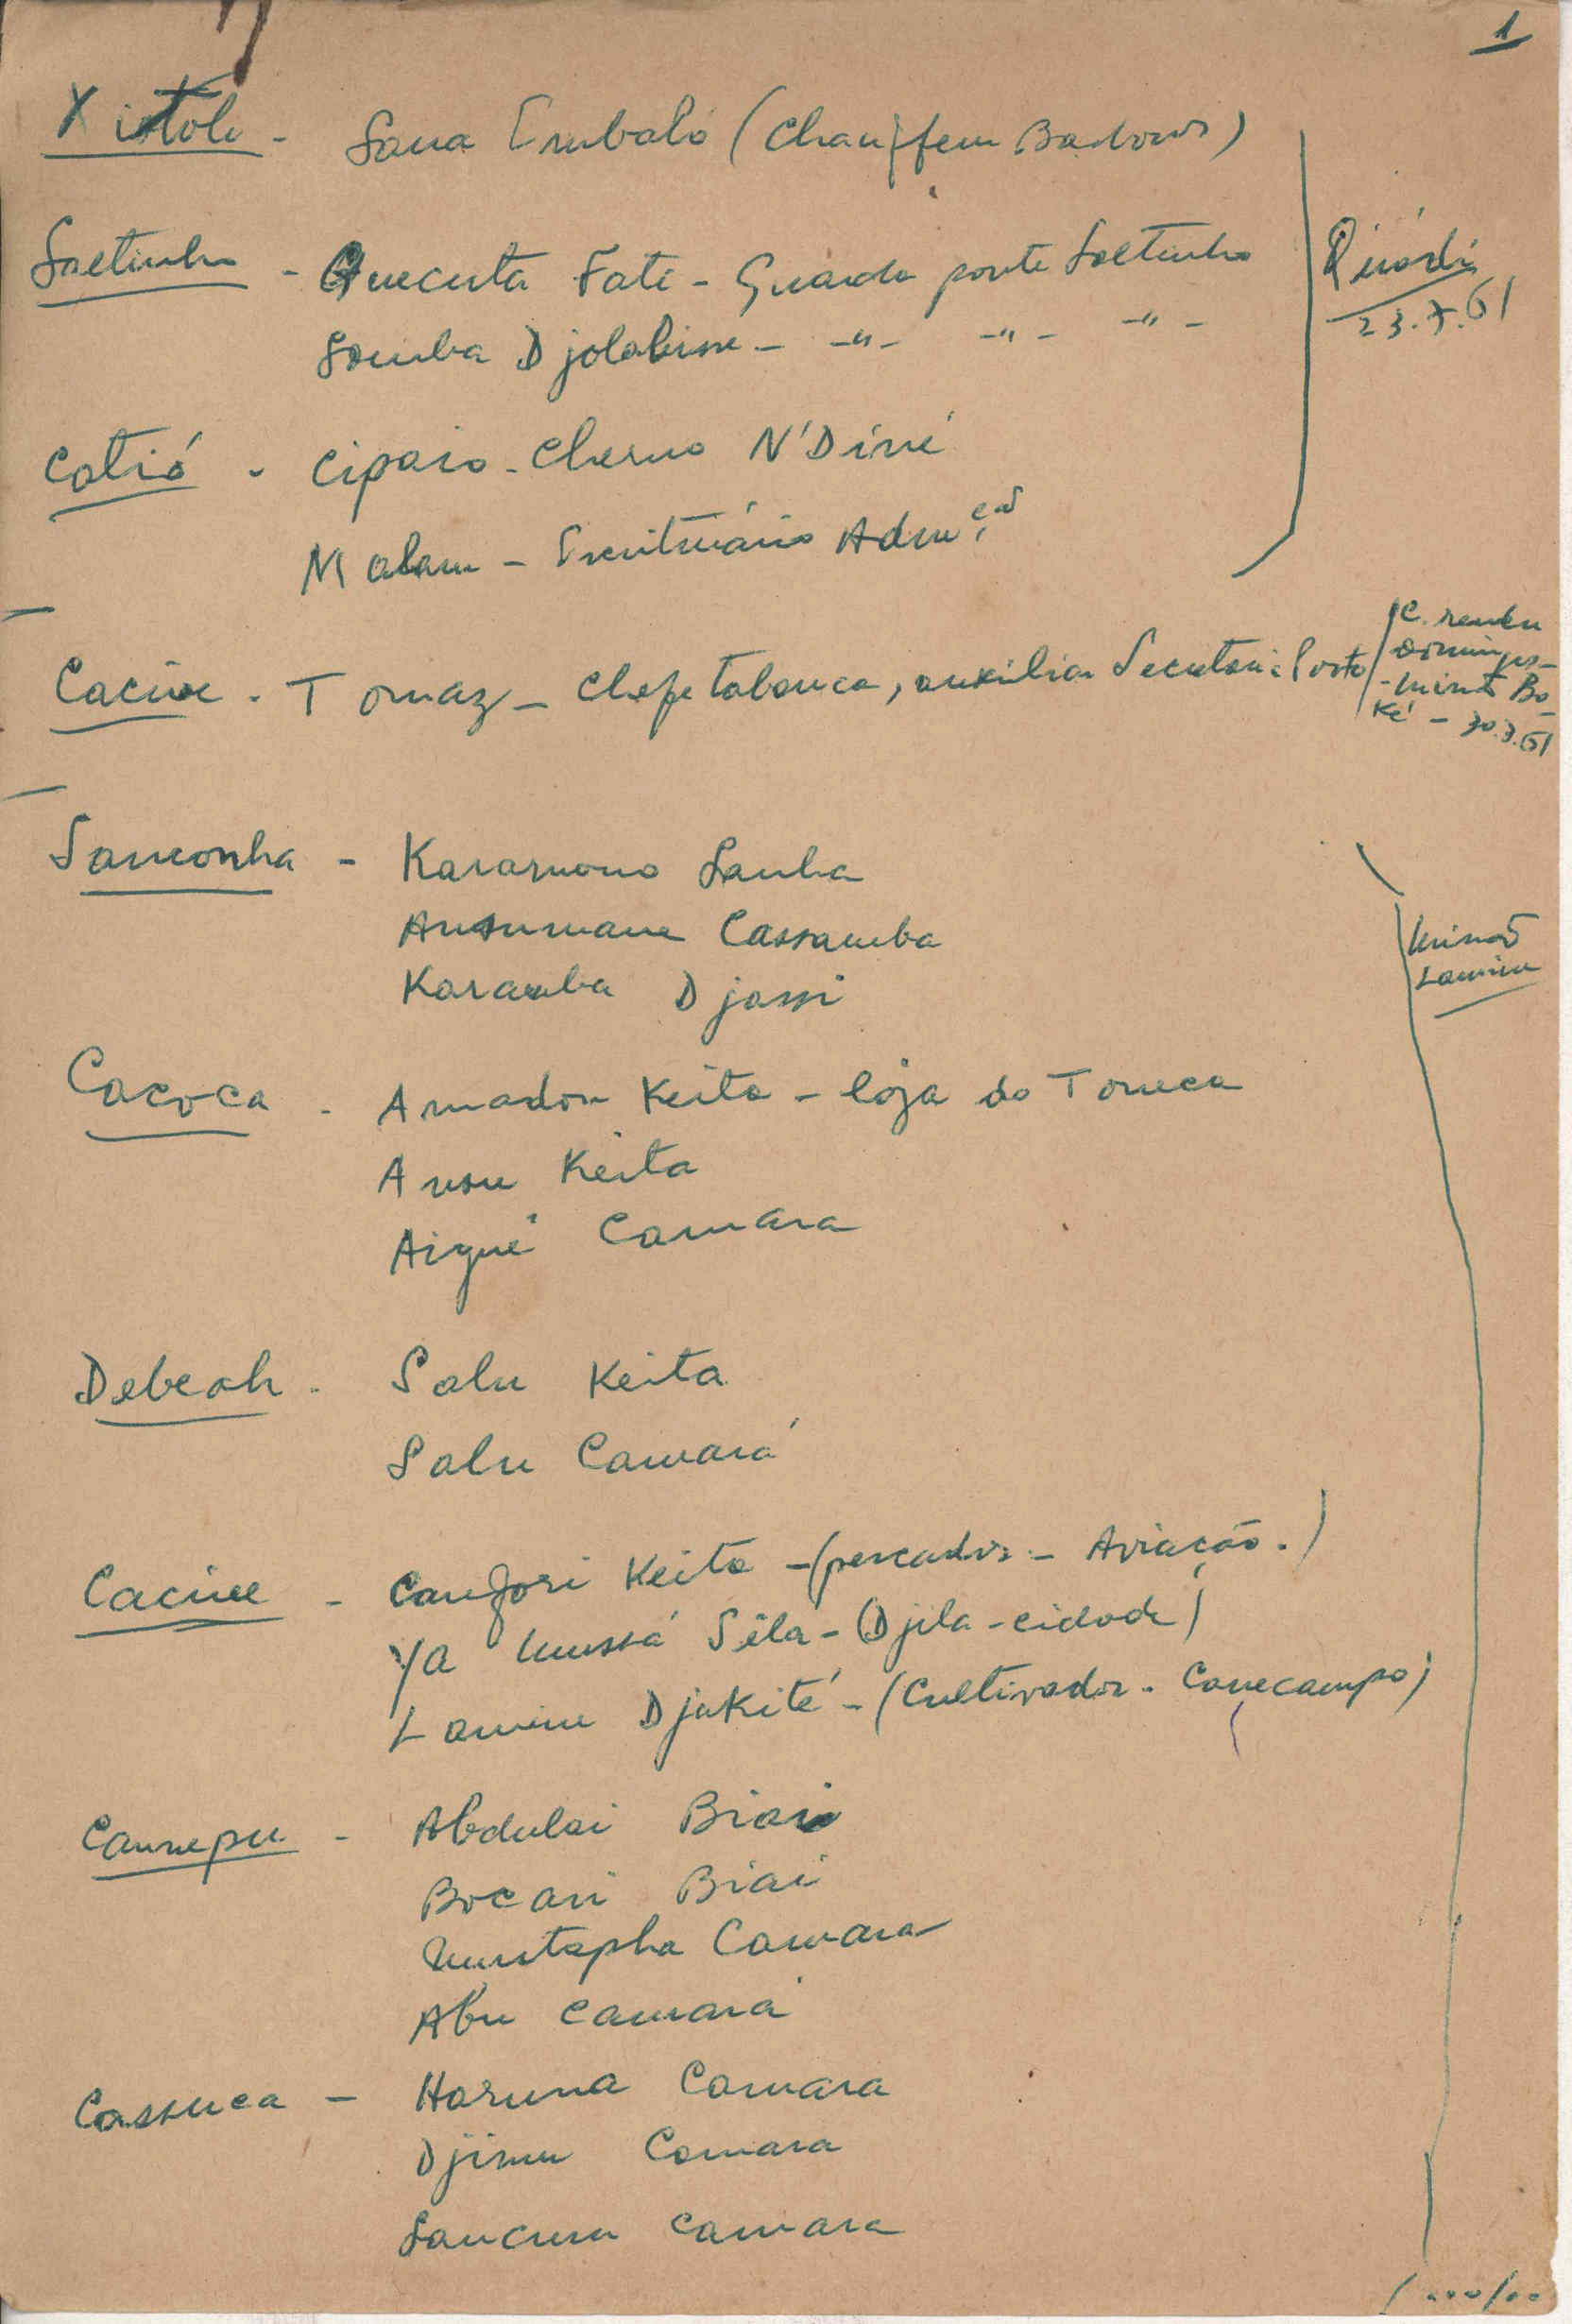 1
Xitole - Sana Embaló (Chauffeur Barbosa)
Saltinho - Quecuta Fati - Guarda ponte Saltinho
Samba Djolabisse - -"- -"- -"-
Quirdi
23.7.61
Catió - Cipaio - Cherno N'Dine
Malam - Escriturário Adm
Cacine - Tomaz - Chefe tabanca, auxiliar Secretaria Posto
C. rendu
30.3.61
Sanconha - Karamono Sanha
Ansumane Cassamba
Karamba Djassi
Lamine
Cacoca - Amadou Keita - loja do Toneca
Ansu Keita
Aigué Camara
Debeah - Salu Keita
Salu Camará
Cacine - Canfori Keita - (pescador - Aviação.)
Ya Mussá Sila - (Djila - cidade)
Lamine Djakité - (Cultivador - Canecampo)
Cannepu - Abdulai Biai
Bocari Biai
Mustapha Camara
Abu Camará
Cassuca - Haruna Camara
Djimu Camara
Sancun Camara
/...